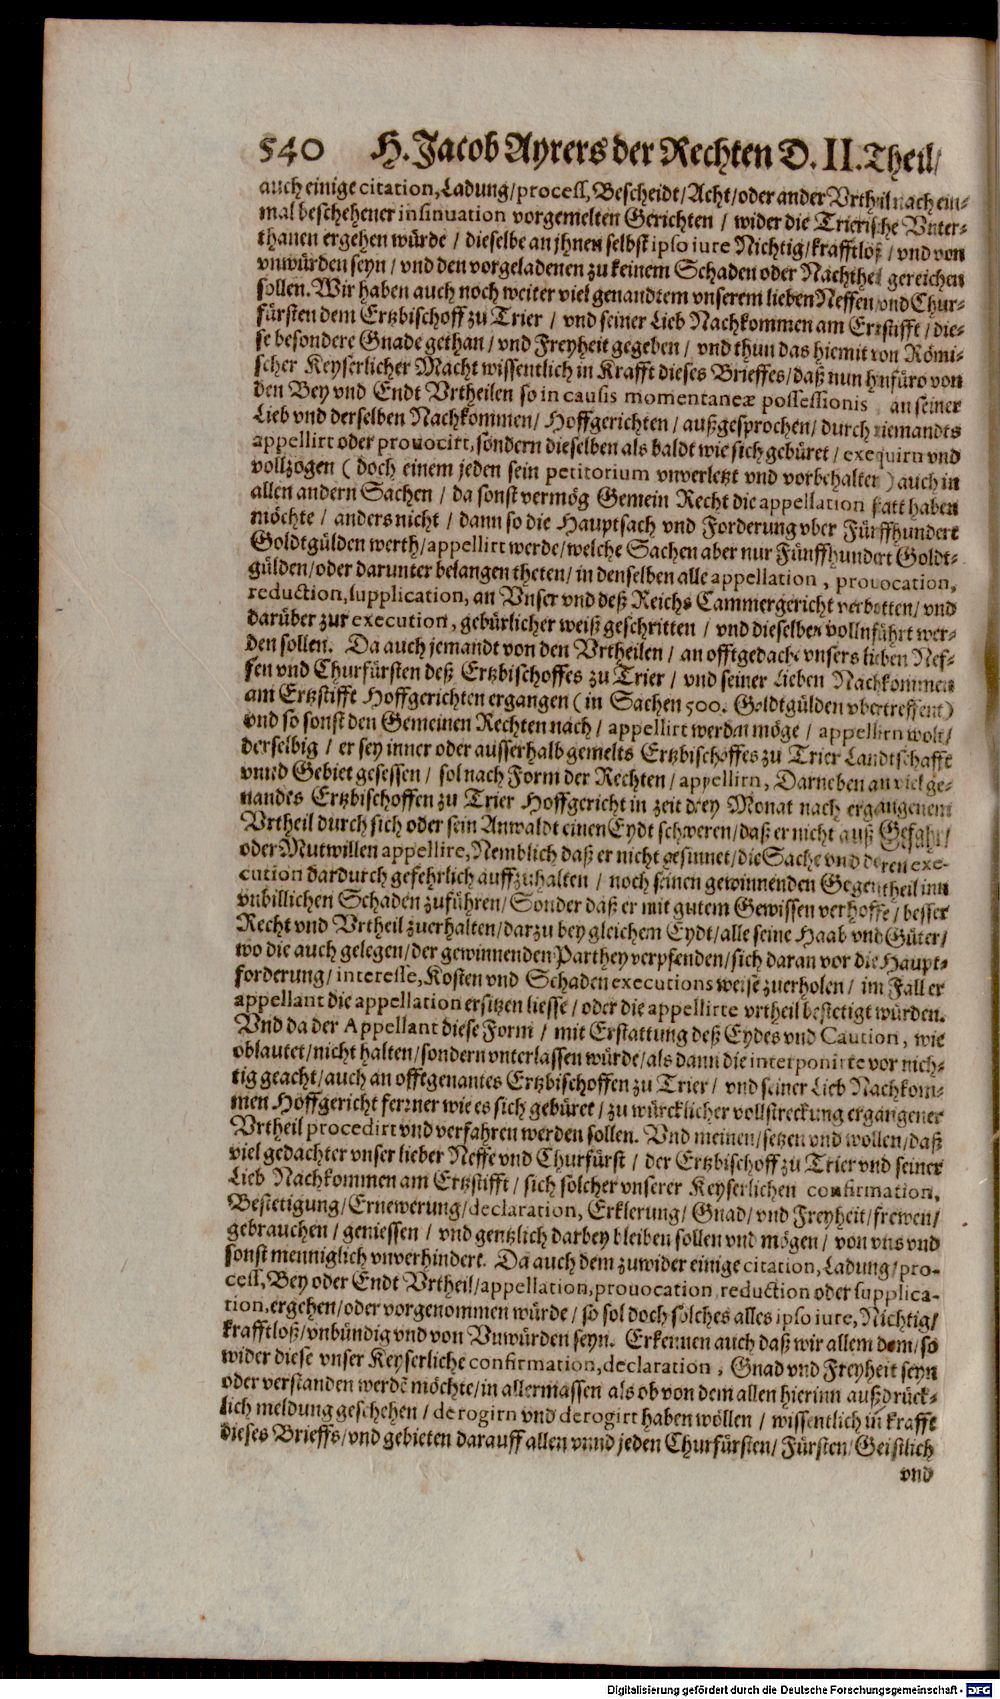 540 H. Jacob Ayrers der Rechten D. II. Theil/
auch einige citation, Ladung/process, Bescheidt/Acht/oder ander Vrtheil nach ein-
mal beschehener insinuation vorgemelten Gerichten / wider die Trierische Vnter-
thanen ergehen würde / dieselbe an jhnen selbst ipso iure Nichtig/krafftloß / vnd von
vnwürden seyn / vnd den vorgeladenen zu keinem Schaden oder Nachtheil gereichen
sollen. Wir haben auch noch weiter viel genandtem vnserem lieben Neffen vnd Chur-
fürsten dem Ertzbischoff zu Trier / vnd seiner Lieb Nachkommen am Ertzstifft / die-
se besondere Gnade gethan / vnd Freyheit gegeben / vnd thun das hiemit von Römi-
scher Keyserlicher Macht wissentlich in Krafft dieses Brieffes/daß nun hnfüro von
den Bey vnd Endt Vrtheilen so in causis momentaneæ possessionis an seiner
Lieb vnd derselben Nachkommen/ Hoffgerichten / außgesprochen/ durch niemandts
appellirt oder prouocirt, sondern dieselben als baldt wie sich gebüret / exequirn vnd
vollzogen ( doch einem jeden sein petitorium vnverletzt vnd vorbehalten ) auch in
allen andern Sachen / da sonst vermög Gemein Recht die appellation statt haben
möchte / anders nicht / dann so die Hauptsach vnd Forderung vber Fünffhundert
Goldtgülden werth/appellirt werde/welche Sachen aber nur Fünffhundert Goldt-
gülden/oder darunter belangen theten/ in denselben alle appellation, prouocation,
reduction, supplication, an Vnser vnd deß Reichs Cammergericht verbotten/ vnd
darüber zur execution, gebürlicher weiß geschritten / vnd dieselben vollnführt wer-
den sollen. Da auch jemandt von den Vrtheilen / an offtgedacht vnsers lieben Nef-
fen vnd Churfürsten deß Ertzbischoffes zu Trier / vnd seiner Lieben Nachkommen
am Ertzstifft Hoffgerichten ergangen ( in Sachen 500. Goldtgülden vbertreffent)
vnd so sonst den Gemeinen Rechten nach / appellirt werden möge / appellirn wolt/
derselbig / er sey inner oder ausserhalb gemelts Ertzbischoffes zu Trier Landtschafft
vnnd Gebiet gesessen / sol nach Form der Rechten / appellirn, Darneben an viel ge-
nandes Ertzbischoffen zu Trier Hoffgericht in zeit drey Monat nach ergangenem
Vrtheil durch sich oder sein Anwaldt einen Eydt schweren/daß er nicht auß Gefahr/
oder Mutwillen appellire, Nemblich daß er nicht gesinnet/die Sache vnd deren exe-
cution dardurch gefehrlich auffzuhalten / noch seinen gewinnenden Gegentheil inn
vnbillichen Schaden zuführen/Sonder daß er mit gutem Gewissen verhoffe / besser
Recht vnd Vrtheil zuerhalten/darzu bey gleichem Eydt/alle seine Haab vnd Güter/
wo die auch gelegen/der gewinnenden Parthey verpfenden/sich daran vor die Haupt-
forderung/ interesse, Kosten vnd Schaden executions weise zuerholen / im Fall er
appellant die appellation ersitzen liesse / oder die appellirte vrtheil bestetigt würden.
Vnd da der Appellant diese Form / mit Erstattung deß Eydes vnd Caution, wie
oblautet/nicht halten/sondern vnterlassen würde/als dann die interponirte vor nich-
tig geacht/auch an offtgenantes Ertzbischoffen zu Trier / vnd seiner Lieb Nachkom-
men Hoffgericht ferrner wie es sich gebüret / zu würcklicher vollstreckung ergangener
Vrtheil procedirt vnd verfahren werden sollen. Vnd meinen/setzen vnd wollen/daß
viel gedachter vnser lieber Neffe vnd Churfürst / der Ertzbischoff zu Trier vnd seiner
Lieb Nachkommen am Ertzstifft / sich solcher vnserer Keyserlichen confirmation,
Bestetigung/Ernewerung/declaration, Erklerung/ Gnad/ vnd Freyheit/frewen/
gebrauchen / geniessen / vnd gentzlich darbey bleiben sollen vnd mögen / von vns vnd
sonst menniglich vnverhindert. Da auch dem zuwider einige citation, Ladung/pro-
cess, Bey oder Endt Vrtheil/appellation, prouocation, reduction oder supplica-
tion, ergehen/oder vorgenommen würde / so sol doch solches alles ipso iure, Nichtig/
krafftloß/vnbündig vnd von Vnwürden seyn. Erkennen auch daß wir allem dem/so
wider diese vnser Keyserliche confirmation, declaration, Gnad vnd Freyheit seyn
oder verstanden werdē möchte/in allermassen als ob von dem allen hierinn außdrück-
lich meldung geschehen / derogirn vnd derogirt haben wöllen / wissentlich in krafft
dieses Brieffs/vnd gebieten darauff allen vnnd jeden Churfürsten/ Fürsten/ Geistlich
vnd
Digitalisierung gefördert durch die Deutsche Forschungsgemeinschaft - DFG